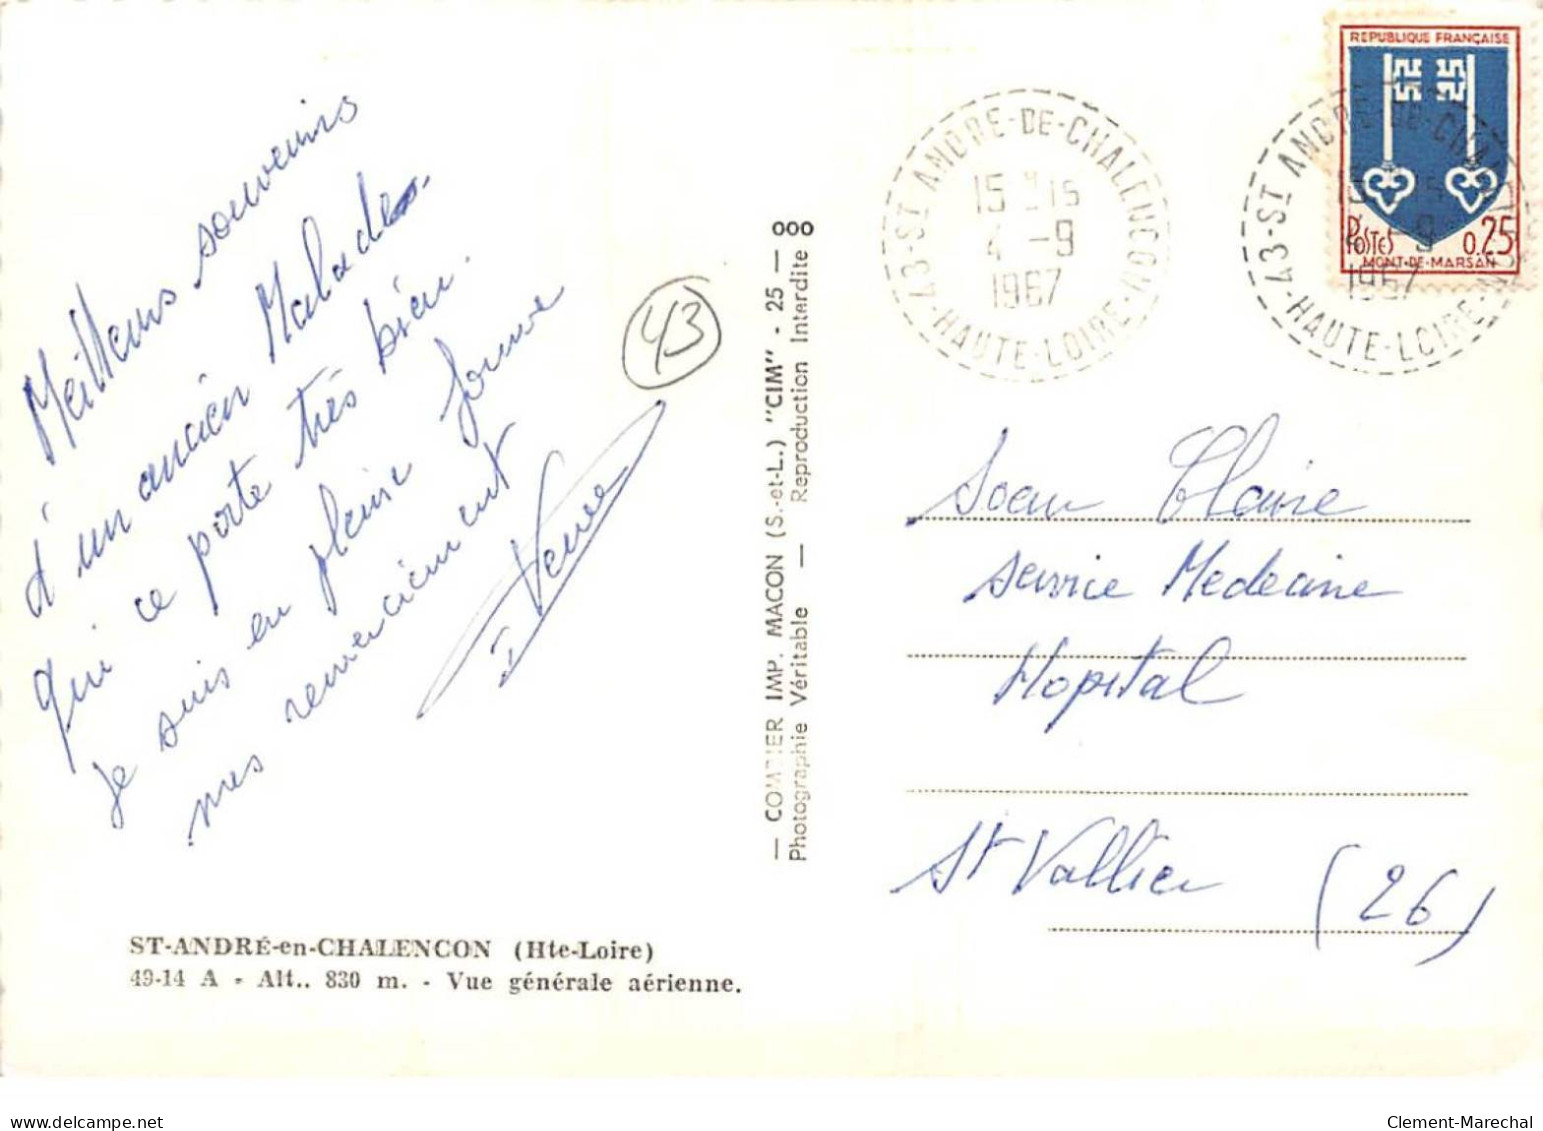 Meilleurs souvenirs
d'un ancien Malades
qui ce porte très bien.
Je suis en pleine forme
mes remerciement
43
— COMBIER IMP. MACON (S.-et-L.) "CIM" - 25 —
Photographie Véritable — Reproduction Interdite
000
ST-ANDRÉ-en-CHALENCON (Hte-Loire)
49-14 A - Alt.. 830 m. - Vue générale aérienne.
43-ST ANDRE-DE-CHALENCON HAUTE-LOIRE
15 H 15
4 -9
1967
REPUBLIQUE FRANÇAISE
POSTES 0.25
MONT-DE-MARSAN
43-ST ANDRE-DE-CHALENCON HAUTE-LOIRE
15 H 15
4 -9
1967
Soeur Claire
service Medecine
Hopital
St Vallier (26)
delcampe.net
Clement-Marechal